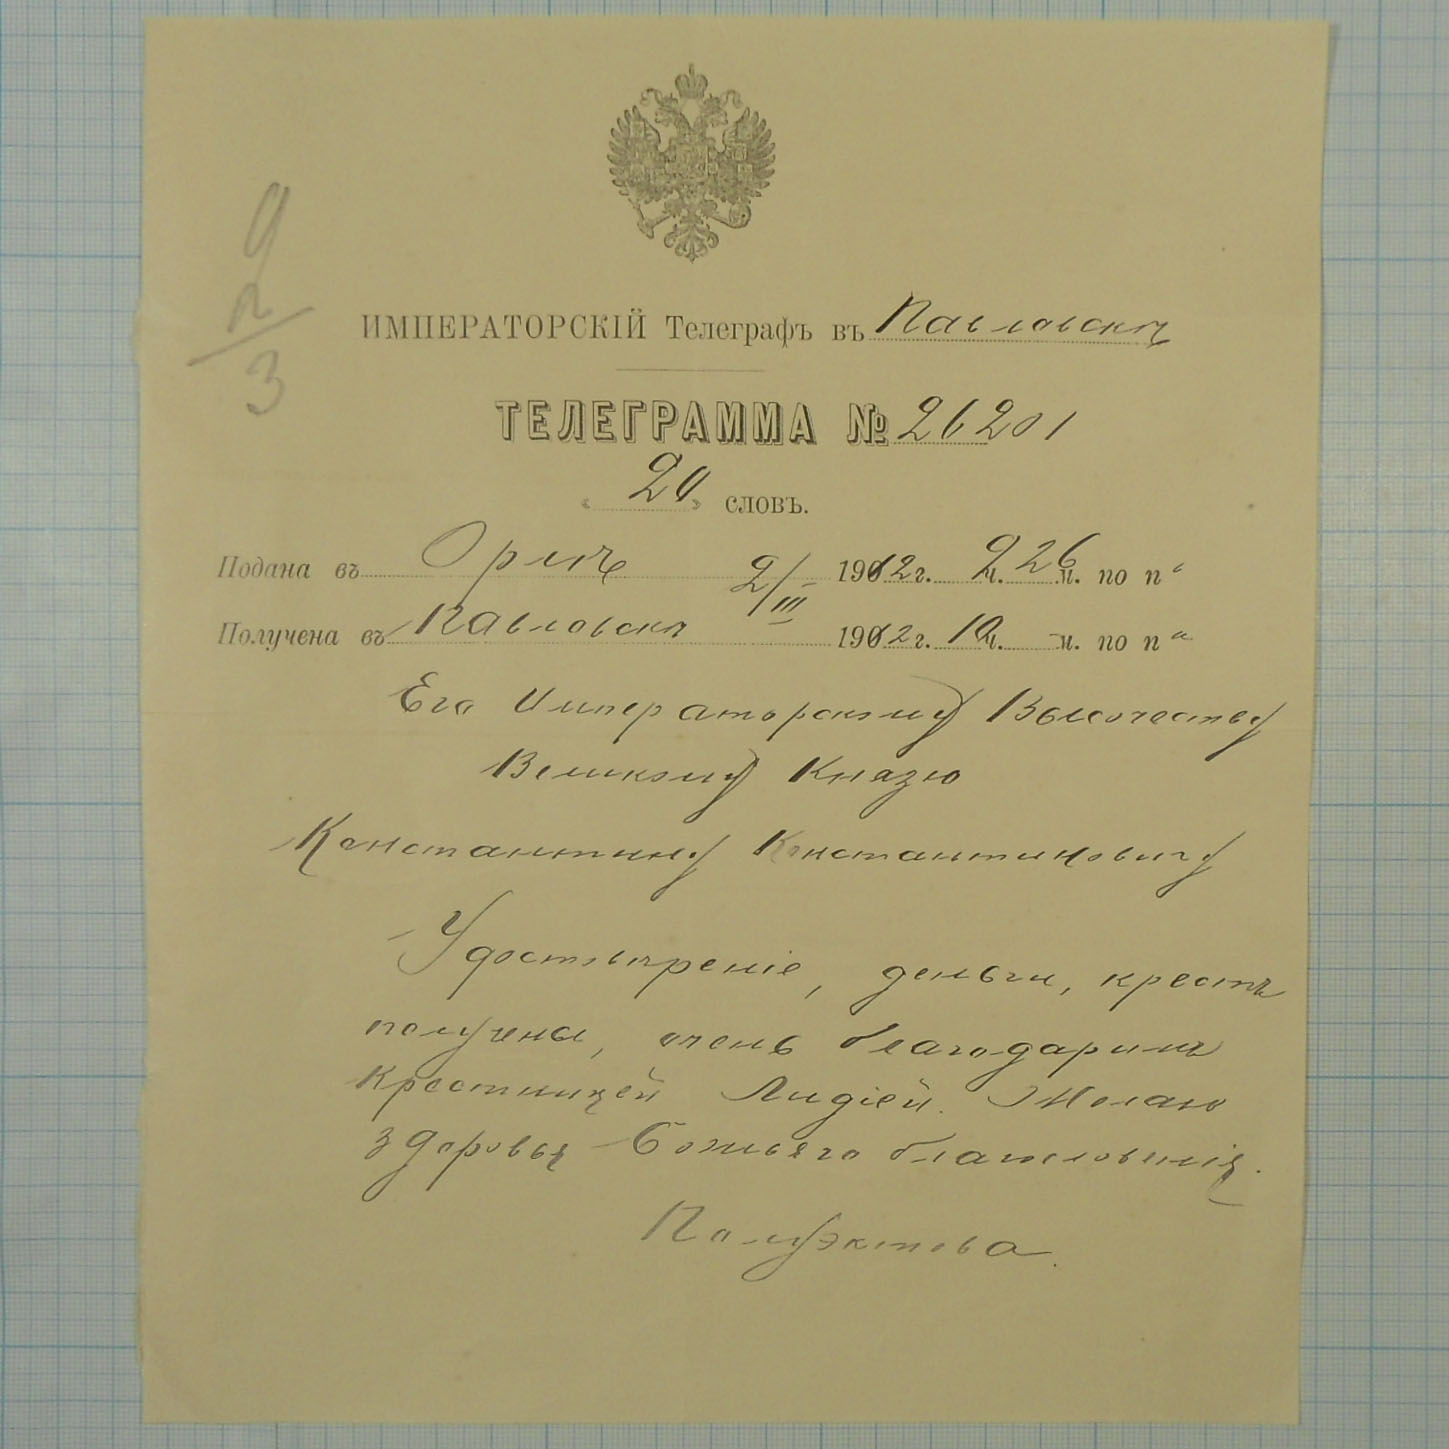 9
2/3
ИМПЕРАТОРСКІЙ Телеграфъ въ Павловскѣ
ТЕЛЕГРАММА № 26201
« 20 » словъ.
Подана въ Орлѣ 2/III 1902 г. 9 ч. 26 м. по п
Получена въ Павловскѣ 1902 г. 10 ч. — м. по п
Его Императорскому Высочеству
Великому Князю
Константину Константиновичу
Удостовѣреніе, деньги, крестъ
получены, очень благодаримъ
крестницей Лидіей. Желаю
здоровья Божьяго благословенія.
Полуэктова.